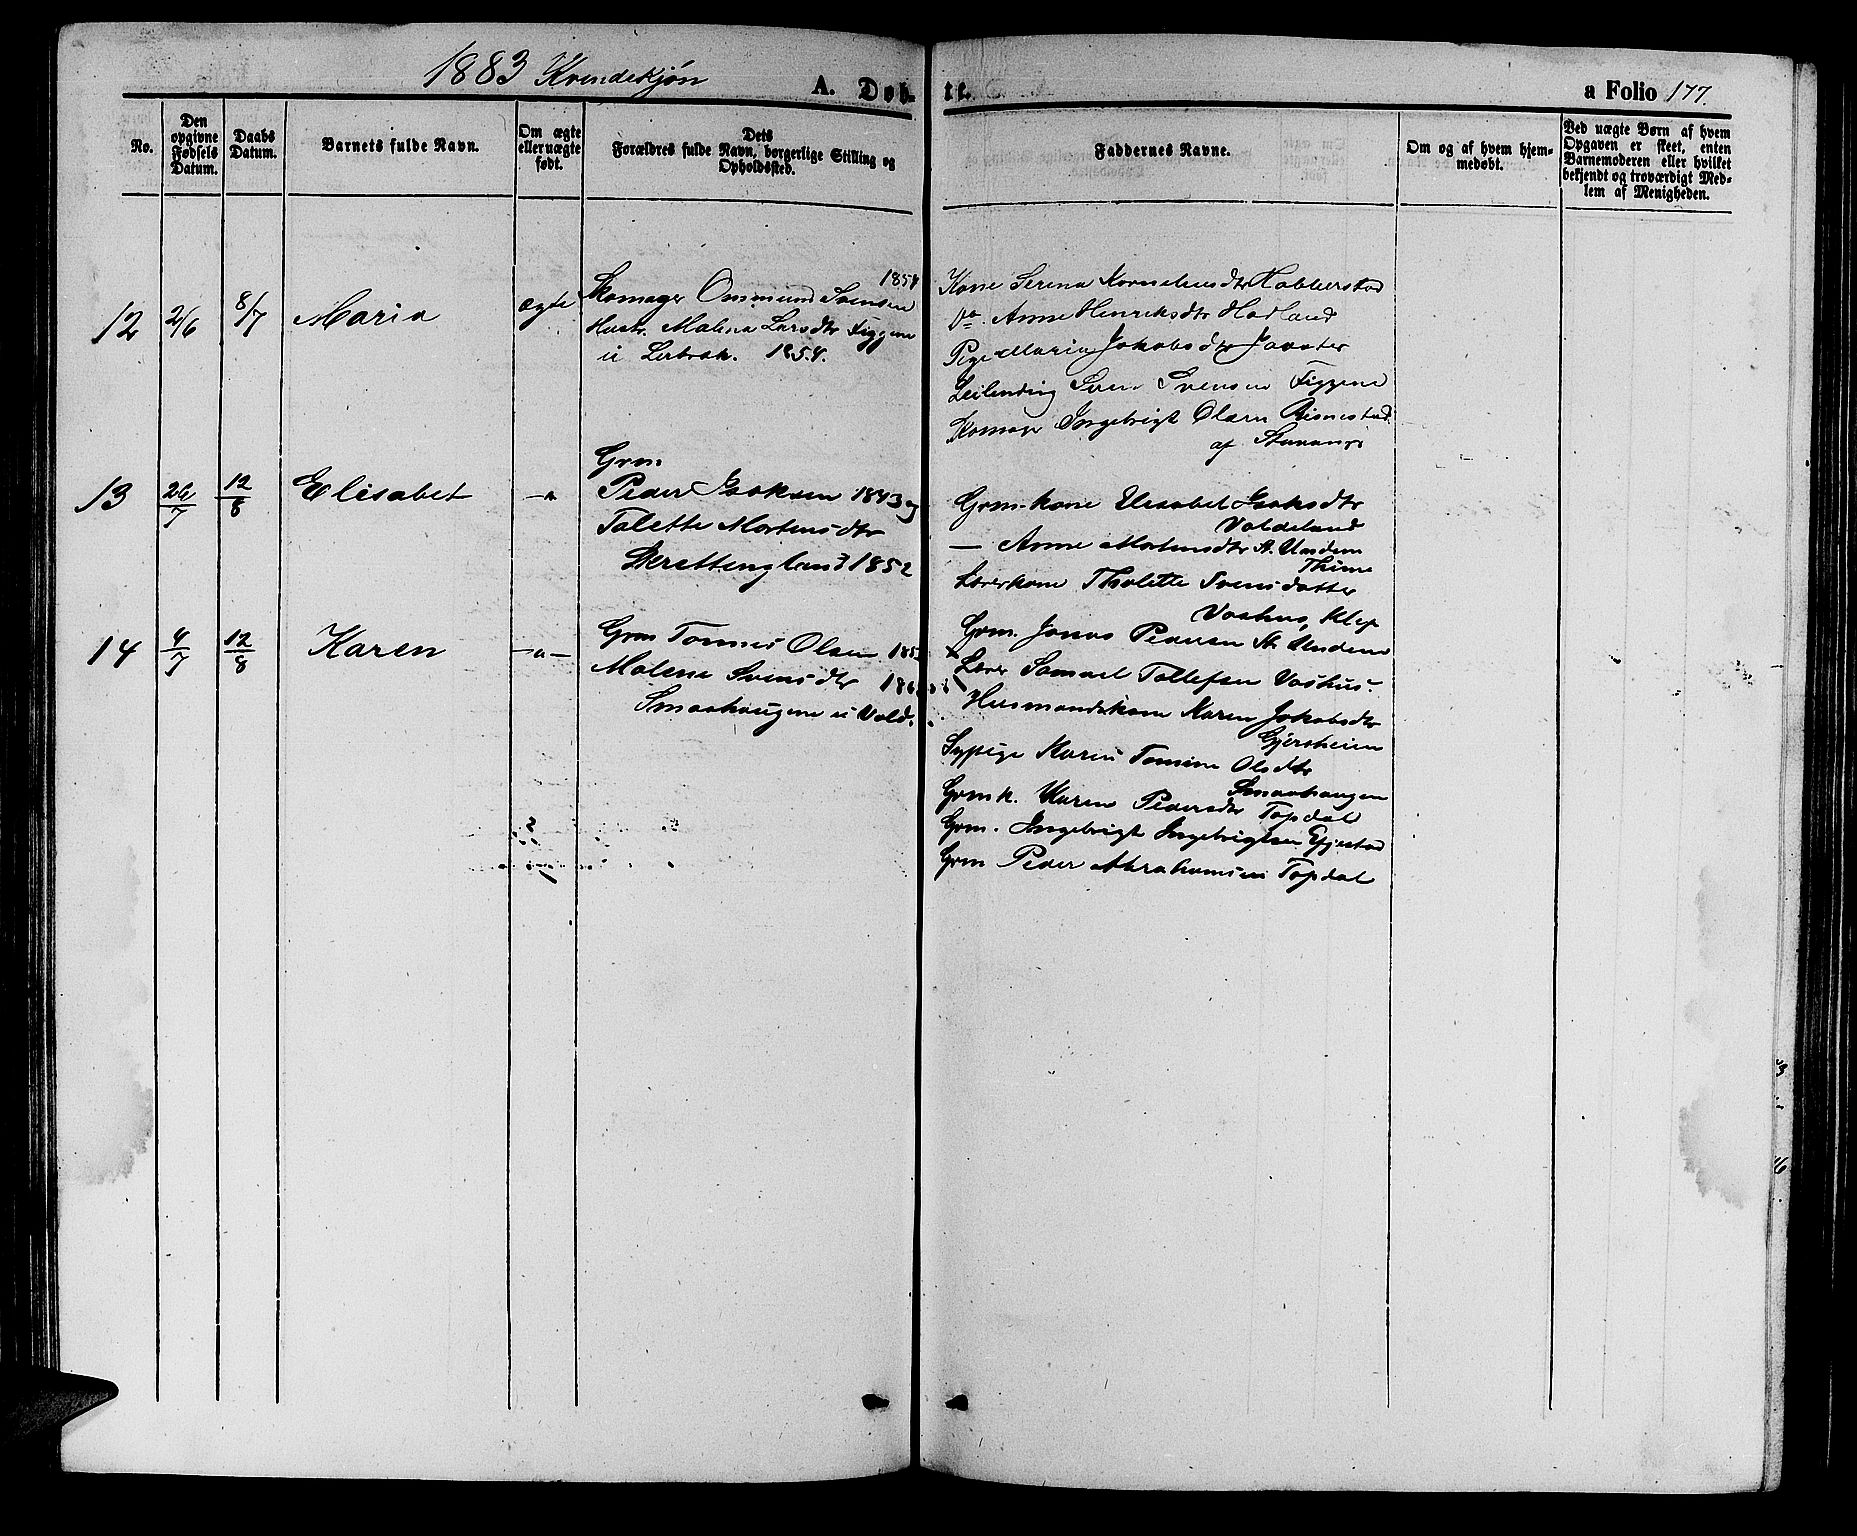 1883 Kvindekjøn A. Døbte. a Folio 177.
No.
Den opgivne Fødsels Datum.
Daabs Datum.
Barnets fulde Navn.
Om ægte eller uægte født.
Dets Forældres fulde Navn, borgerlige Stilling og Opholdssted.
Faddernes Navne.
Om og af hvem hjemmedøbt.
Ved uægte Børn af hvem Opgaven er skeet, enten Barnemoderen eller hvilket bekjendt og troværdigt Medlem af Menigheden.
12 2/6 8/7 Maria ægte
1854
Skomager Ommund Svensen
Hustr. Malena Larsdtr Figgene
u Lerbræk. 1854.
Kone Serena Korneliusdtr Hobberstad
Do. Anne Henriksdtr Hadland
Pige Maria Jakobsdtr
Leilending Sven Svensen Figgene
Skomager Ingebrigt Olsen Risnestad
af Stavanger
13 26/7 12/8 Elisabet —"—
Grm
Peder Isaksen 1843 og
Talette Mortensdtr
Skrettingland 1852
Grm.kone Elisabet Isaksdtr
Valdeland
— Anne Mortensdtr St. Undem
Thime
Lærerkone Tholette Svensdatter
Vashus, Klep
Grm. Jonas Pedersen St. Undem
Lærer Samuel Tollefsen Vashus.
14 4/7 12/8 Karen —"—
Grm Tønnes Olsen
Malene Svensdtr
Smaahaugene u Vald.
Husmandskone Karen Jakobsdtr
Gjersheien
Sypige Karen Tomine Olsdtr
Smaahaugen
Grmk. Karen Pedersdtr Topdal
Grm. Ingebrigt Ingebrigtsen Egjestad
Grm Peder Abrahamsen Topdal